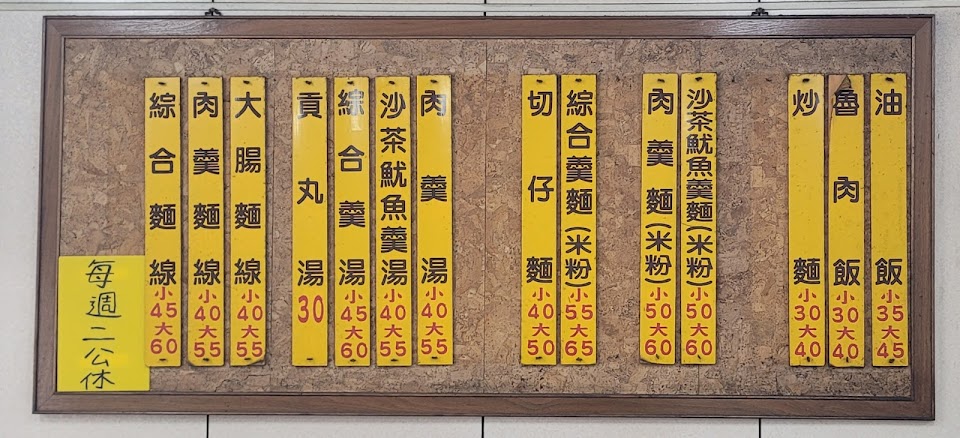 油飯小35大45
魯肉飯小30大40
炒麵小30大40
沙茶魷魚羹麵(米粉)小50大60
肉羹麵(米粉)小50大60
綜合羹麵(米粉)小55大65
切仔麵小40大50
肉羹湯小40大55
沙茶魷魚羹湯小40大55
綜合羹湯小45大60
貢丸湯30
大腸麵線小40大55
肉羹麵線小40大55
綜合麵線小45大60
每週二公休